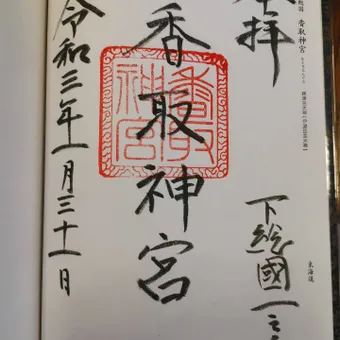 拝
下総國一之
香取神宮
香取神宮
令和三年一月三十一日
香取神宮
東海道